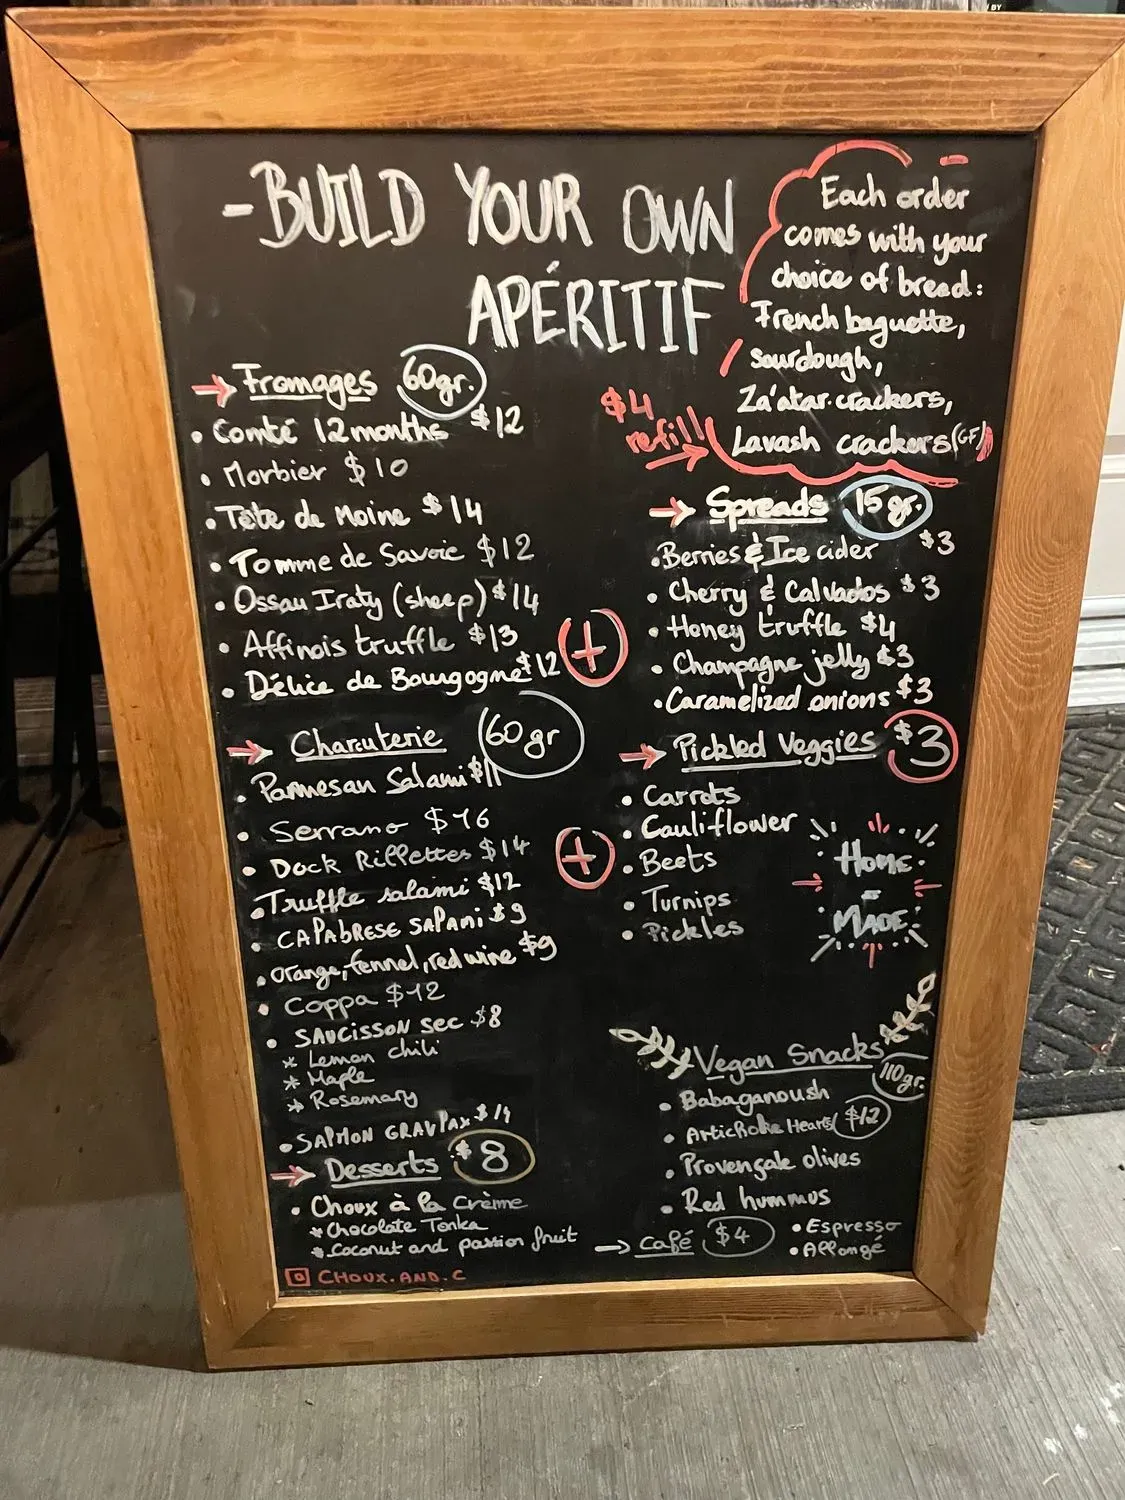 - BUILD YOUR OWN
APÉRITIF
Each order
comes with your
choice of bread:
French baguette,
sourdough,
Za'atar crackers,
Lavash crackers (GF)
$4
refill
Fromages 60gr.
• Comté 12 months $12
• Morbier $10
• Tête de Moine $14
• Tomme de Savoie $12
• Ossau Iraty (sheep) $14
• Affinois truffle $13
• Délice de Bourgogne $12
+
Charcuterie 60 gr
• Parmesan Salami $11
• Serrano $16
• Duck Rillettes $14
• Truffle salami $12
• CALABRESE SALAMI $9
• Orange, fennel, red wine $9
• Coppa $12
• SAUCISSON SEC $8
* Lemon chili
* Maple
* Rosemary
• SALMON GRAVLAX $14
+
Desserts $8
• Choux à la Crème
* Chocolate Tonka
* Coconut and passion fruit
CHOUX.AND.C
Spreads 15gr.
• Berries & Ice cider $3
• Cherry & Calvados $3
• Honey truffle $4
• Champagne jelly $3
• Caramelized onions $3
Pickled Veggies $3
• Carrots
• Cauliflower
• Beets
• Turnips
• Pickles
HOME
-
MADE
Vegan Snacks
110gr.
• Babaganoush
• Artichoke Hearts $12
• Provençale olives
• Red hummus
Café $4
• Espresso
• Allongé